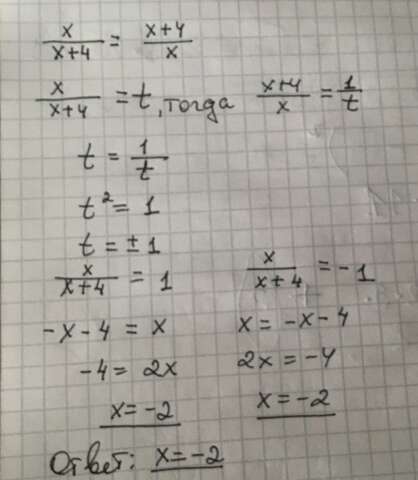 x/(x+4) = (x+4)/x
x/(x+4) = t, тогда (x+4)/x = 1/t
t = 1/t
t² = 1
t = ±1
x/(x+4) = 1 x/(x+4) = -1
-x-4 = x x = -x-4
-4 = 2x 2x = -4
x = -2 x = -2
Ответ: x = -2